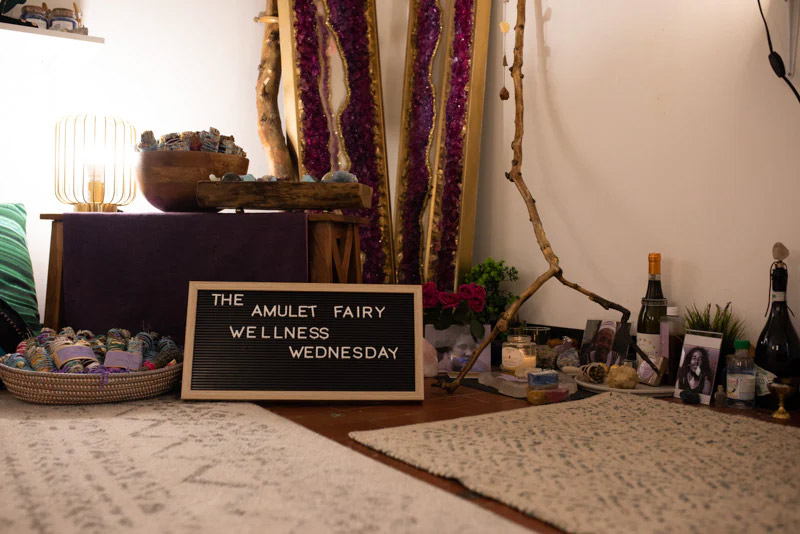 THE
AMULET FAIRY
WELLNESS
WEDNESDAY